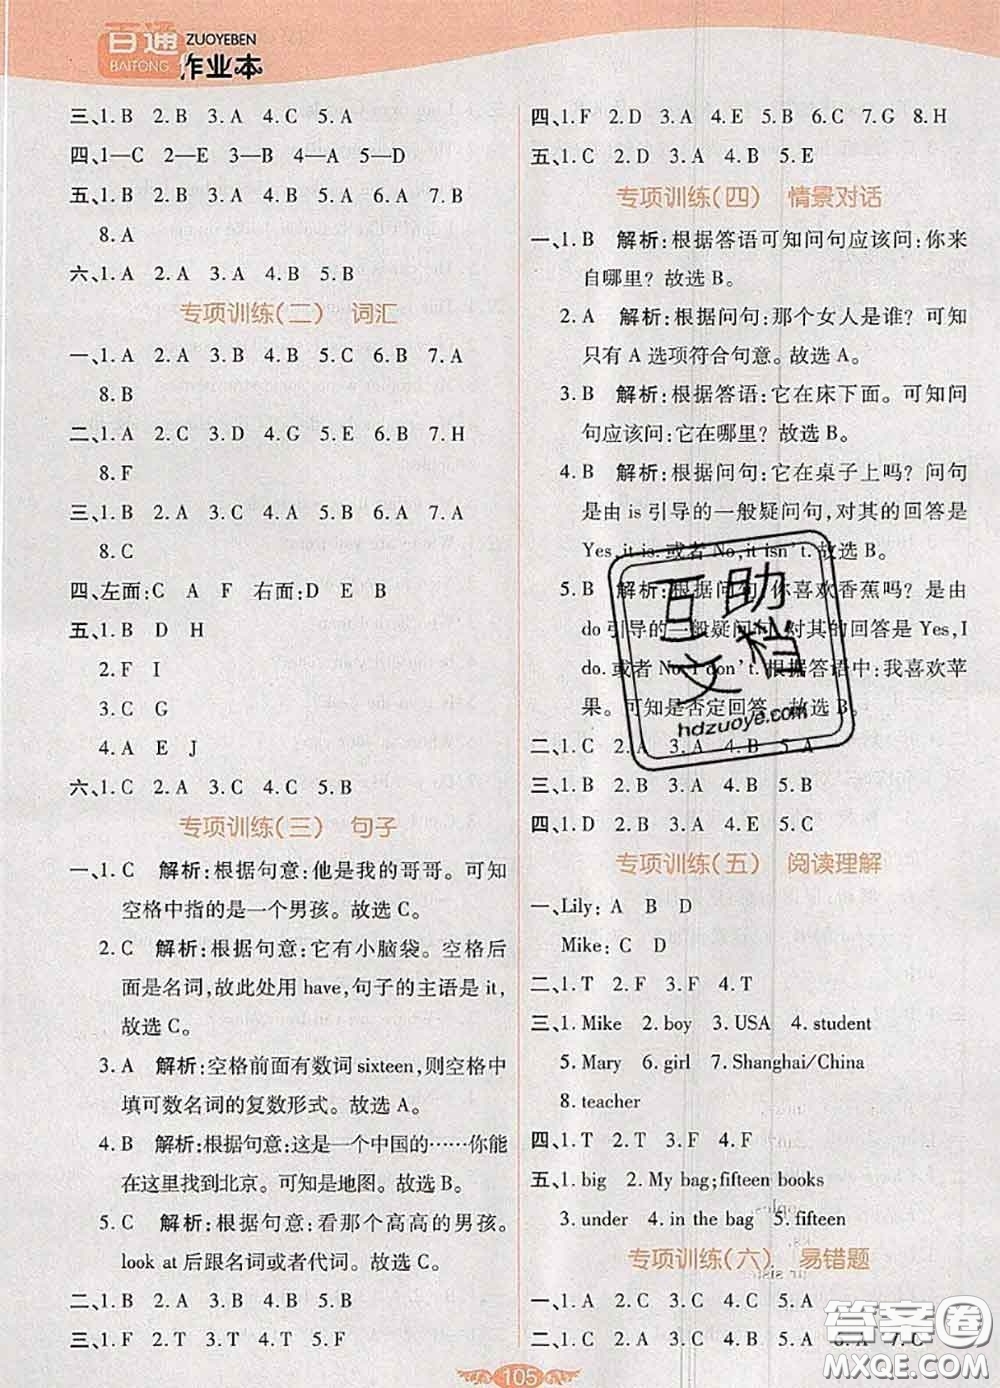 百通
BAITONG
ZUOYEBEN
作业本
三、1. B 2. B 3. A 4. C 5. A
四、1—C 2—E 3—B 4—A 5—D
五、1. B 2. B 3. A 4. B 5. A 6. A 7. B
8. A
六、1. A 2. A 3. A 4. B 5. B
专项训练(二) 词汇
一、1. A 2. A 3. B 4. B 5. A 6. B 7. A
8. B
二、1. A 2. C 3. D 4. G 5. E 6. B 7. H
8. F
三、1. B 2. A 3. C 4. A 5. B 6. A 7. B
8. C
四、左面:C A F 右面:D E B
五、1. B D H
2. F I
3. C G
4. A E J
六、1. C 2. A 3. C 4. C 5. B
专项训练(三) 句子
一、1. C 解析:根据句意:他是我的哥哥。可知
空格中指的是一个男孩。故选 C。
2. C 解析:根据句意:它有小脑袋。空格后
面是名词,故此处用 have,句子的主语是 it,
故选 C。
3. A 解析:空格前面有数词 sixteen,则空格中
填可数名词的复数形式。故选 A。
4. B 解析:根据句意:这是一个中国的……你能
在这里找到北京。可知是地图。故选 B。
5. C 解析:根据句意:看那个高高的男孩。
look at 后跟名词或者代词。故选 C。
二、1. B 2. A 3. B 4. A 5. B
三、1. F 2. T 3. T 4. T 5. F
四、1. F 2. D 3. A 4. C 5. B 6. E 7. G 8. H
五、1. C 2. D 3. A 4. B 5. E
专项训练(四) 情景对话
一、1. B 解析:根据答语可知问句应该问:你来
自哪里?故选 B。
2. A 解析:根据问句:那个女人是谁?可知
只有 A 选项符合句意。故选 A。
3. B 解析:根据答语:它在床下面。可知问
句应该问:它在哪里?故选 B。
4. B 解析:根据问句:它在桌子上吗?问句
是由 is 引导的一般疑问句,对其的回答是
Yes, it is. 或者 No, it isn't. 故选 B。
5. B 解析:根据问句:你喜欢香蕉吗?是由
do 引导的一般疑问句,对其的回答是 Yes, I
do. 或者 No, I don't. 根据答语中:我喜欢苹
果。可知是否定回答。故选 B。
二、1. C 2. A 3. A 4. B 5. B
三、1. B 2. B 3. A 4. B 5. B
四、1. D 2. B 3. A 4. E 5. C
专项训练(五) 阅读理解
一、Lily: A B D
Mike: C D
二、1. T 2. F 3. F 4. T
三、1. Mike 2. boy 3. USA 4. student
5. Mary 6. girl 7. Shanghai/China
8. teacher
四、1. T 2. T 3. F 4. F
五、1. big 2. My bag;fifteen books
3. under 4. in the bag 5. fifteen
专项训练(六) 易错题
一、1. A 2. C 3. C 4. C 5. A
二、1. C 2. C 3. A 4. A
105
互助文档
hdzuoye.com
答案圈
MXQE.COM